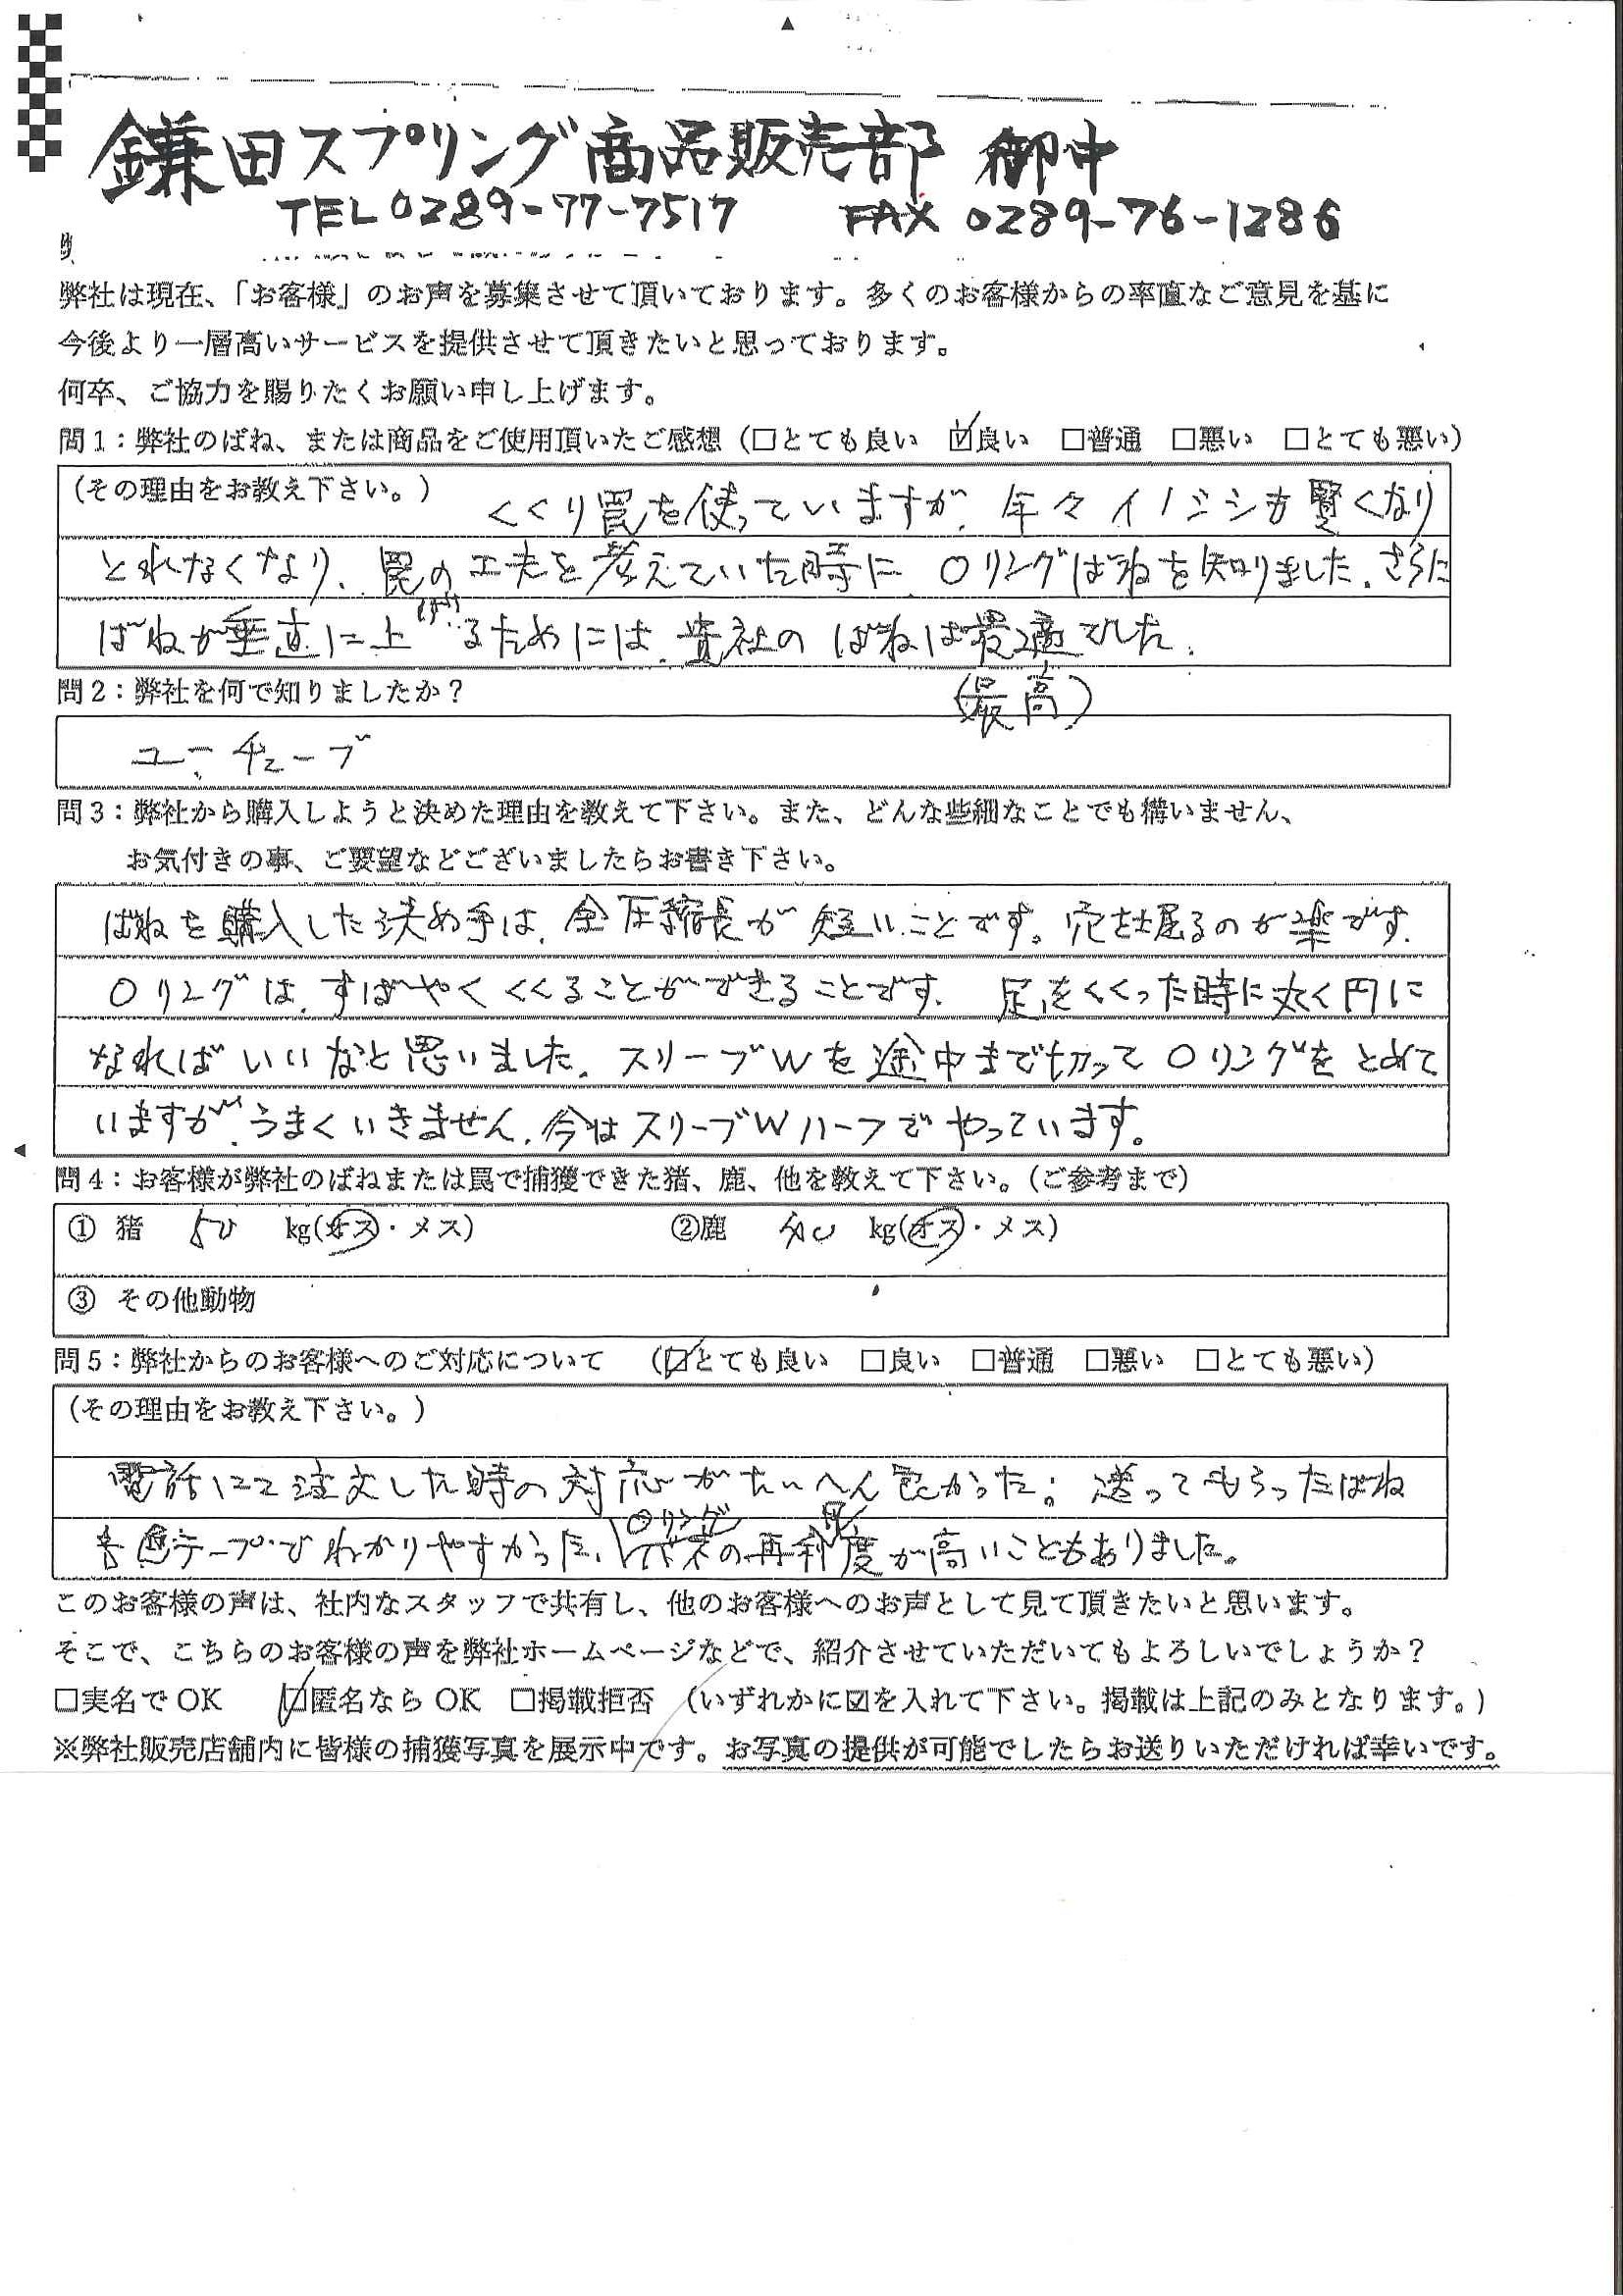 鎌田スプリング商品販売部 御中
TEL 0289-77-7517 FAX 0289-76-1286
弊社は現在、「お客様」のお声を募集させて頂いております。多くのお客様からの率直なご意見を基に
今後より一層高いサービスを提供させて頂きたいと思っております。
何卒、ご協力を賜りたくお願い申し上げます。
問1：弊社のばね、または商品をご使用頂いたご感想（□とても良い ☑良い □普通 □悪い □とても悪い）
（その理由をお教え下さい。） くくり罠を使っていますが、年々イノシシも賢くなり
とれなくなり、罠の工夫を考えていた時に、Oリングばねを知りました。さらに
ばねが垂直に上げるためには、貴社のばねは最適でした。
（最高）
問2：弊社を何で知りましたか？
ユーチューブ
問3：弊社から購入しようと決めた理由を教えて下さい。また、どんな些細なことでも構いません、
お気付きの事、ご要望などございましたらお書き下さい。
ばねを購入した決め手は、全圧縮長が短いことです。穴を掘るのが楽です。
Oリングは、すばやくくくることができることです。足をくくった時に丸く円に
なればいいなと思いました。スリーブWを途中まで切ってOリングをとめて
いますが、うまくいきません。今はスリーブWハーフでやっています。
問4：お客様が弊社のばねまたは罠で捕獲できた猪、鹿、他を教えて下さい。（ご参考まで）
① 猪 50 kg(オス・メス) ②鹿 kg(オス・メス)
③ その他動物
問5：弊社からのお客様へのご対応について （☑とても良い □良い □普通 □悪い □とても悪い）
（その理由をお教え下さい。）
電話にて注文した時の対応がたいへん良かった。送ってもらったばね
も色テープでわかりやすかった、Oリングバネの再利用度が高いこともありました。
このお客様の声は、社内なスタッフで共有し、他のお客様へのお声として見て頂きたいと思います。
そこで、こちらのお客様の声を弊社ホームページなどで、紹介させていただいてもよろしいでしょうか？
□実名でOK ☑匿名ならOK □掲載拒否 （いずれかに☑を入れて下さい。掲載は上記のみとなります。）
※弊社販売店舗内に皆様の捕獲写真を展示中です。お写真の提供が可能でしたらお送りいただければ幸いです。